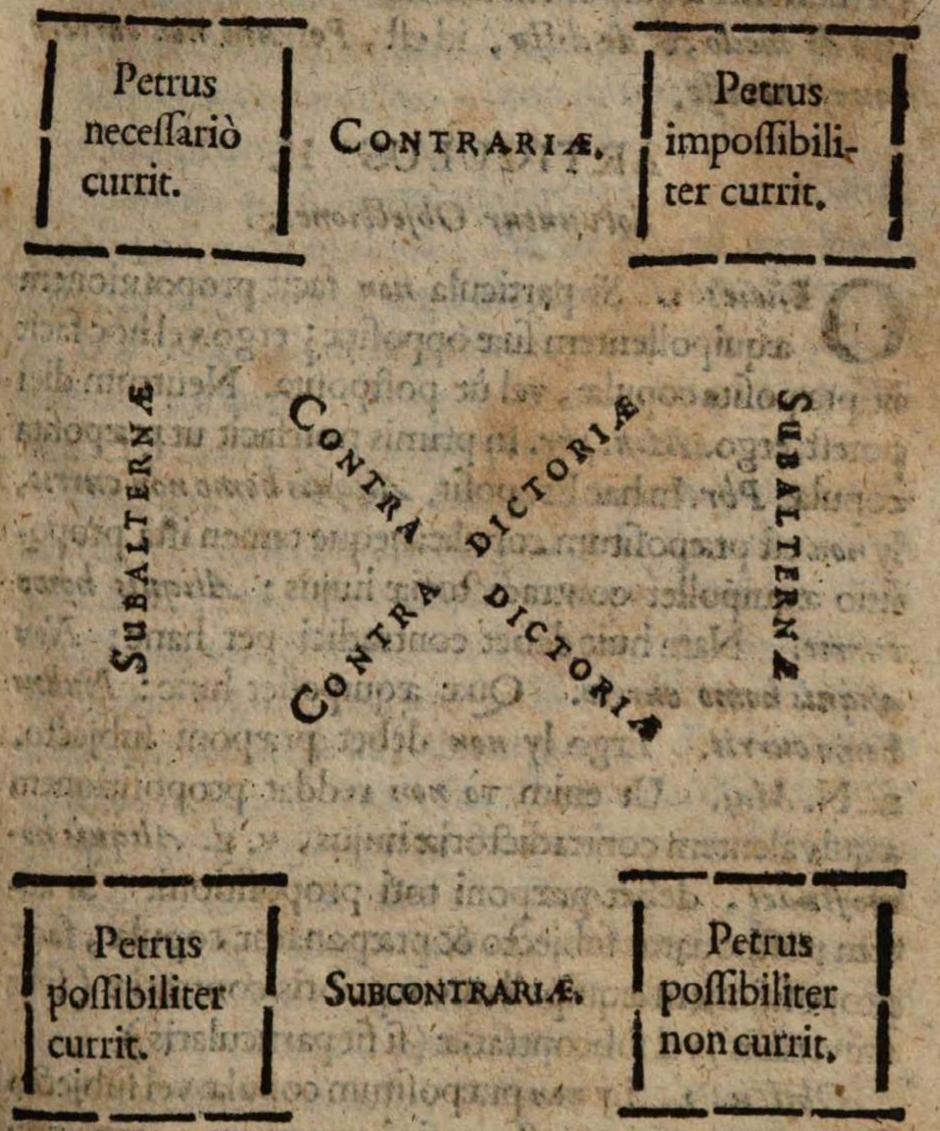 Petrus
neceſſariò
currit.
CONTRARIÆ.
Petrus
impoſſibili-
ter currit.
SUBALTERNÆ
CONTRA DICTORIÆ
CONTRA DICTORIÆ
SUBALTERNÆ
Petrus
poſſibiliter
currit.
SUBCONTRARIÆ.
Petrus
poſſibiliter
non currit.